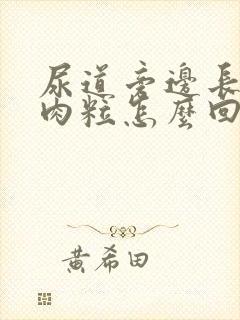 尿道旁邊長
肉粒怎麼回
黃希田